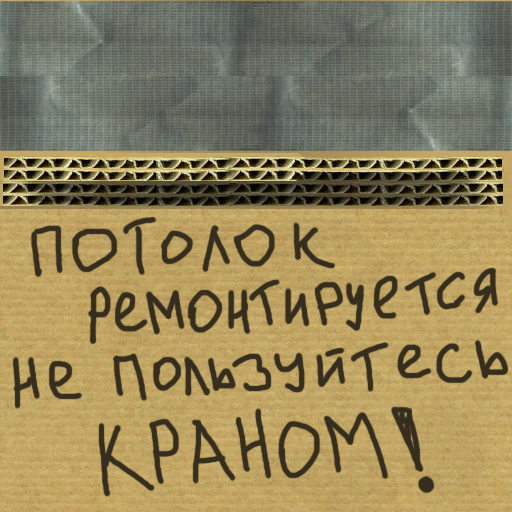 ПОТОЛОК
РЕМОНТИРУЕТСЯ
НЕ ПОЛЬЗУЙТЕСЬ
КРАНОМ!